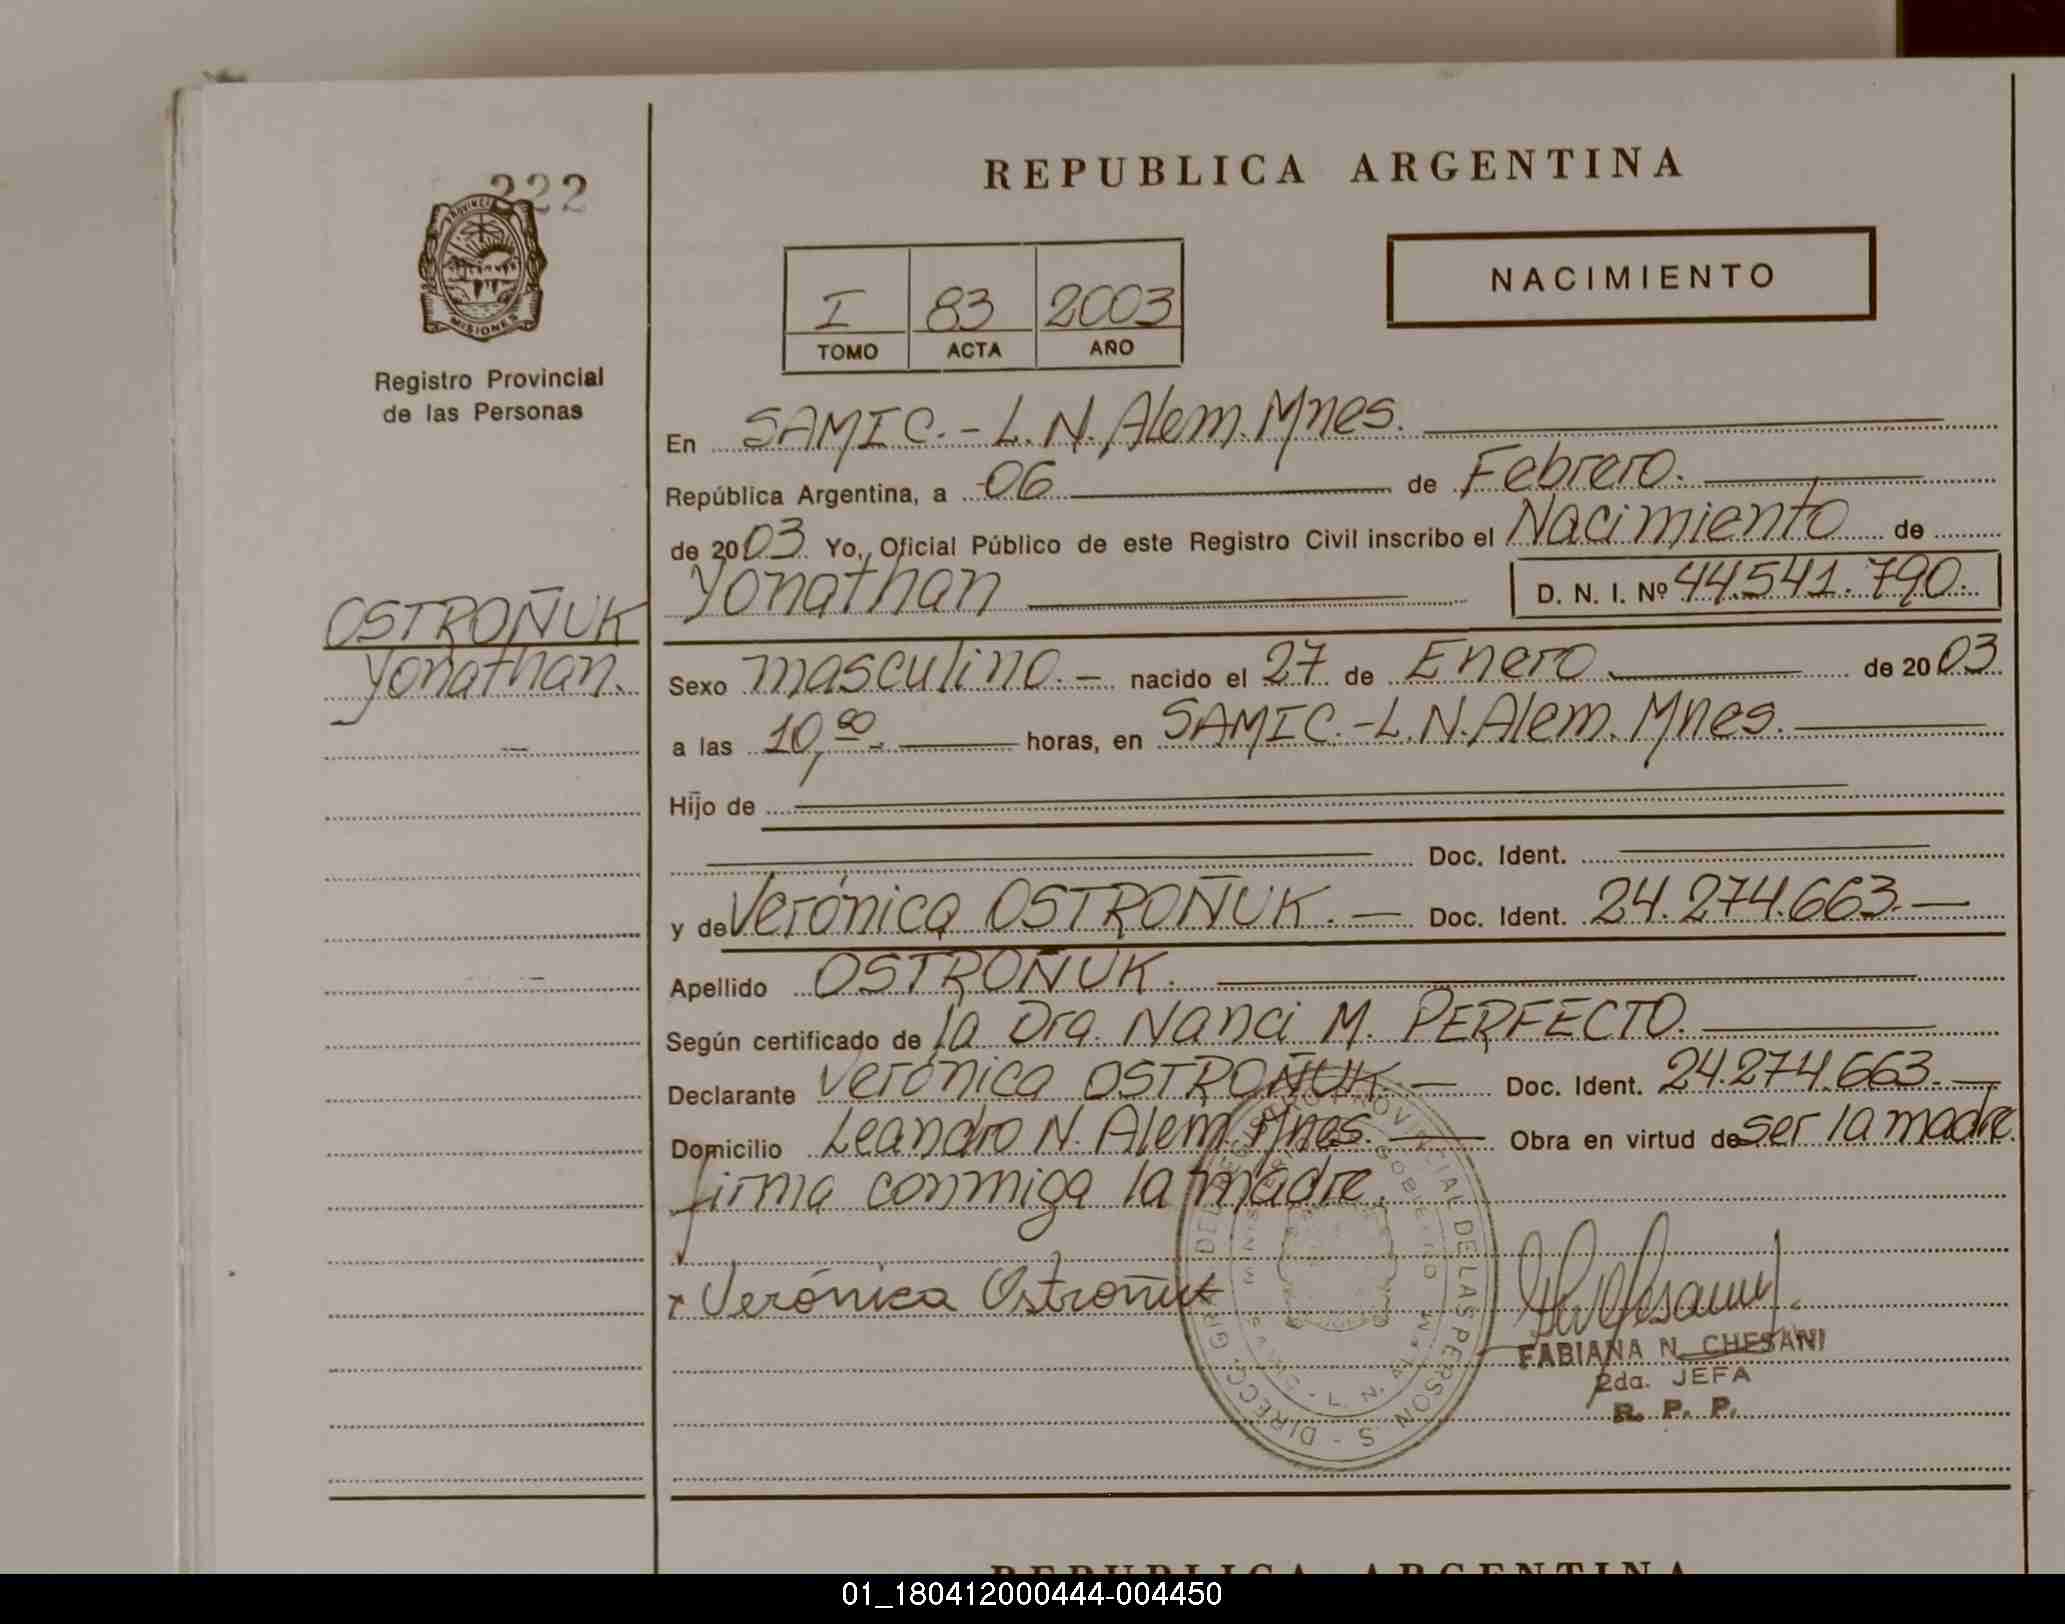 222
PROVINCIA
MISIONES
Registro Provincial
de las Personas
REPUBLICA ARGENTINA
NACIMIENTO
I 83 2003
TOMO ACTA AÑO
En SAMIC.-L.N.Alem.Mnes.
República Argentina, a 06 de Febrero.
de 2003. Yo, Oficial Público de este Registro Civil inscribo el Nacimiento de
Yonathan D. N. I. Nº 44.541.790.
OSTROÑUK
Yonathan.
Sexo masculino.- nacido el 27 de Enero de 2003
a las 10, horas, en SAMIC.-L.N.Alem.Mnes.
Hijo de
Doc. Ident.
y de Verónica OSTROÑUK.- Doc. Ident. 24.274.663.-
Apellido OSTROÑUK.
Según certificado de la Dra. Nanci M. PERFECTO.
Declarante Verónica OSTROÑUK.- Doc. Ident. 24.274.663.-
Domicilio Leandro N. Alem.Mnes. Obra en virtud de ser la madre.
firma conmiga la madre.
Verónica Ostroñuk
FABIANA N. CHESANI
2da. JEFA
R. P. P.
REPUBLICA ARGENTINA
01_180412000444-004450